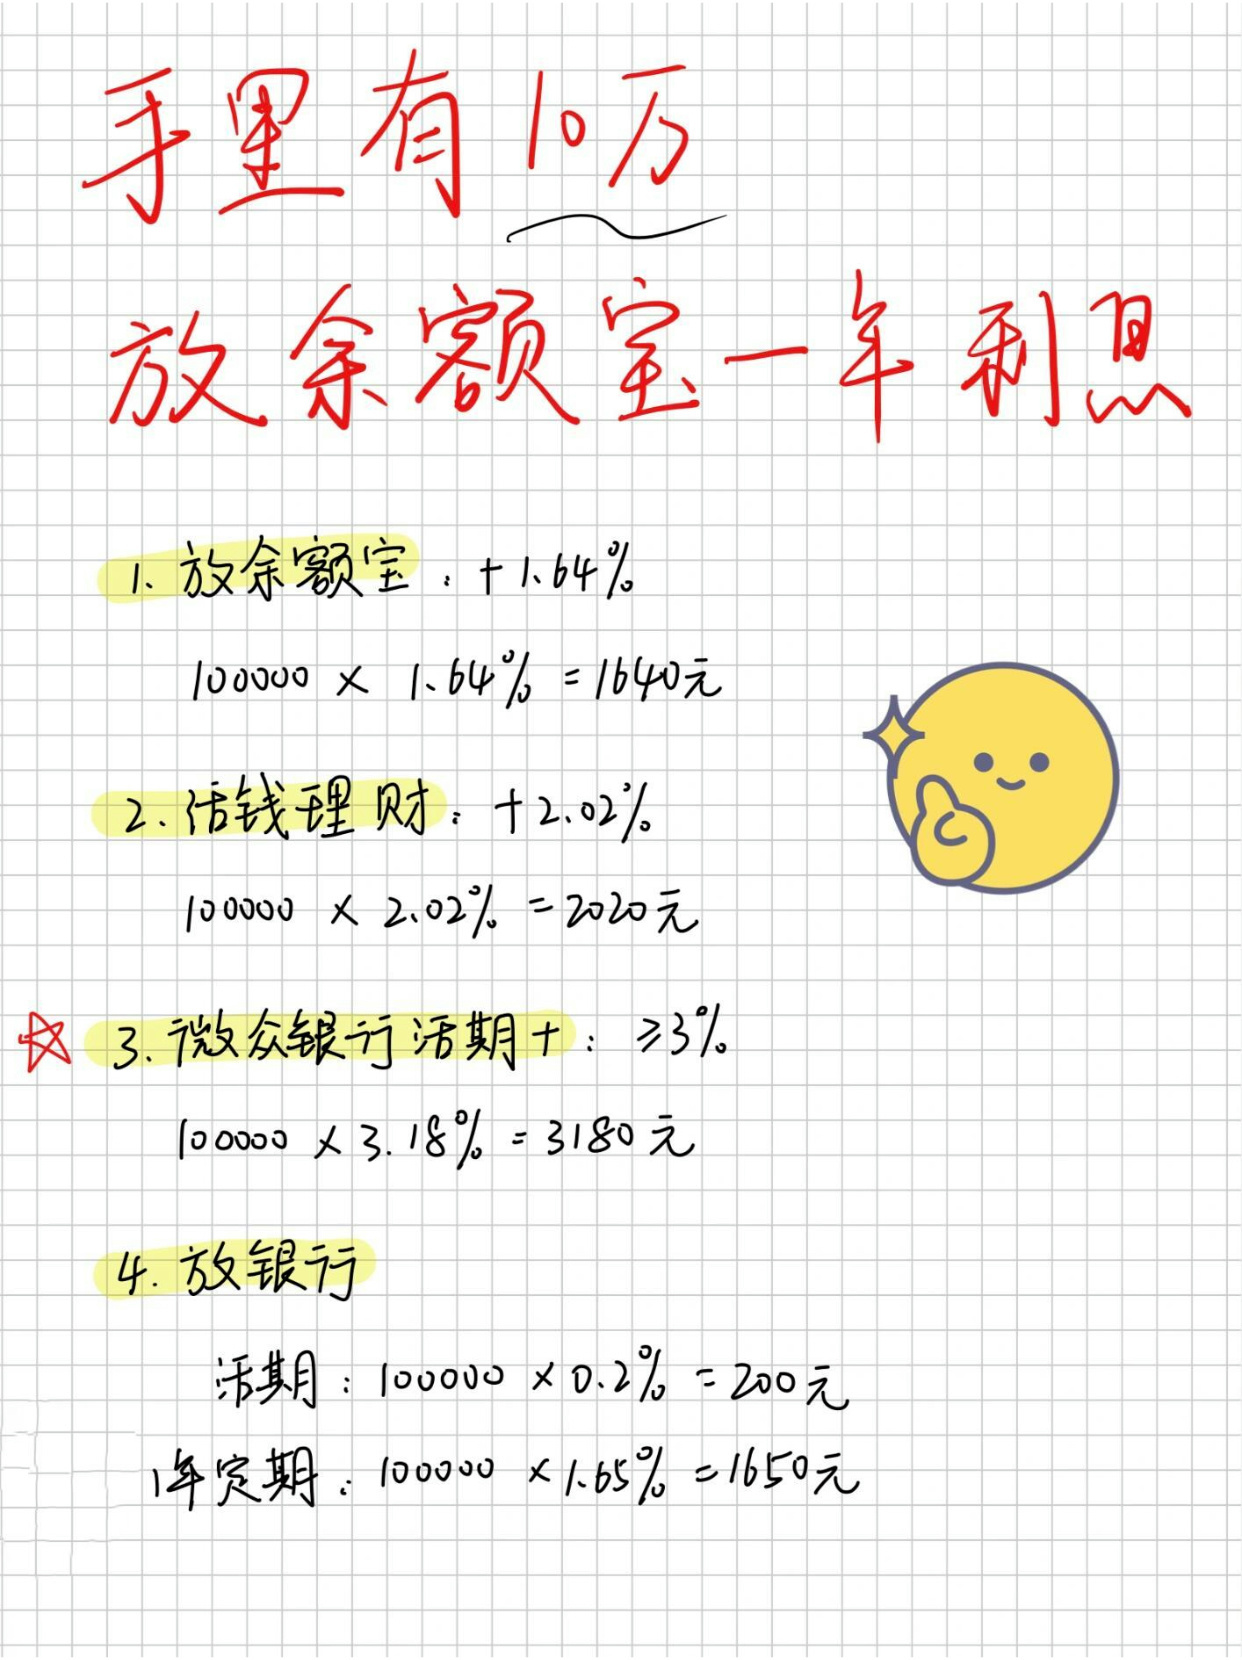 手里有10万
放余额宝一年利息
1. 放余额宝：+1.64%
100000 × 1.64% = 1640元
2. 活钱理财：+2.02%
100000 × 2.02% = 2020元
3. 微众银行活期+：≥3%
100000 × 3.18% = 3180元
4. 放银行
活期：100000 × 0.2% = 200元
1年定期：100000 × 1.65% = 1650元